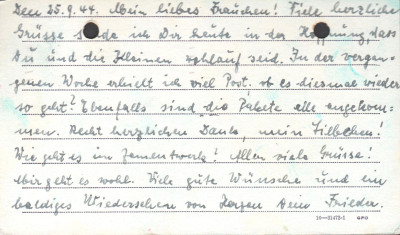 Den 25.9.44. Mein liebes Frauchen! Viele herzliche
Grüsse s de ich Dir heute in der Ho nung, dass
Du und die Kleinen wohlauf seid. In der vergan-
genen Woche erhielt ich viel Post, ob es diesmal wieder
so geht? Ebenfalls sind die Pakete alle angekom-
men. Recht herzlichen Dank, mein Liebchen!
Wie geht es im Zementwerk? Allen viele Grüsse!
Mir geht es wohl. Viele gute Wünsche und ein
baldiges Wiedersehen von Herzen Dein Frieder.
16—21473-1 GPO